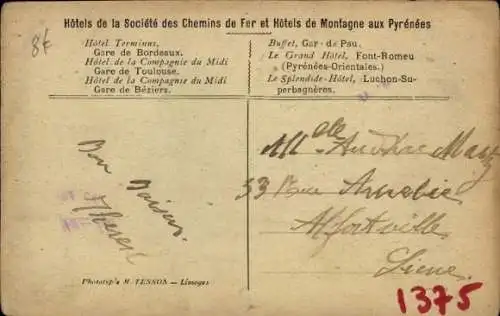 Hôtels de la Société des Chemins de Fer et Hôtels de Montagne aux Pyrénées
8€
Hôtel Terminus,
Gare de Bordeaux.
Hôtel de la Compagnie du Midi
Gare de Toulouse.
Hôtel de la Compagnie du Midi
Gare de Béziers.
Buffet, Gare de Pau.
Le Grand Hôtel, Font-Romeu
(Pyrénées-Orientales.)
Le Splendide-Hôtel, Luchon-Su-
perbagnères.
Bon Baisers.
Therese
Mlle
33 Rue
Alfortville
Seine.
Phototypie M. TESSON — Limoges
1375